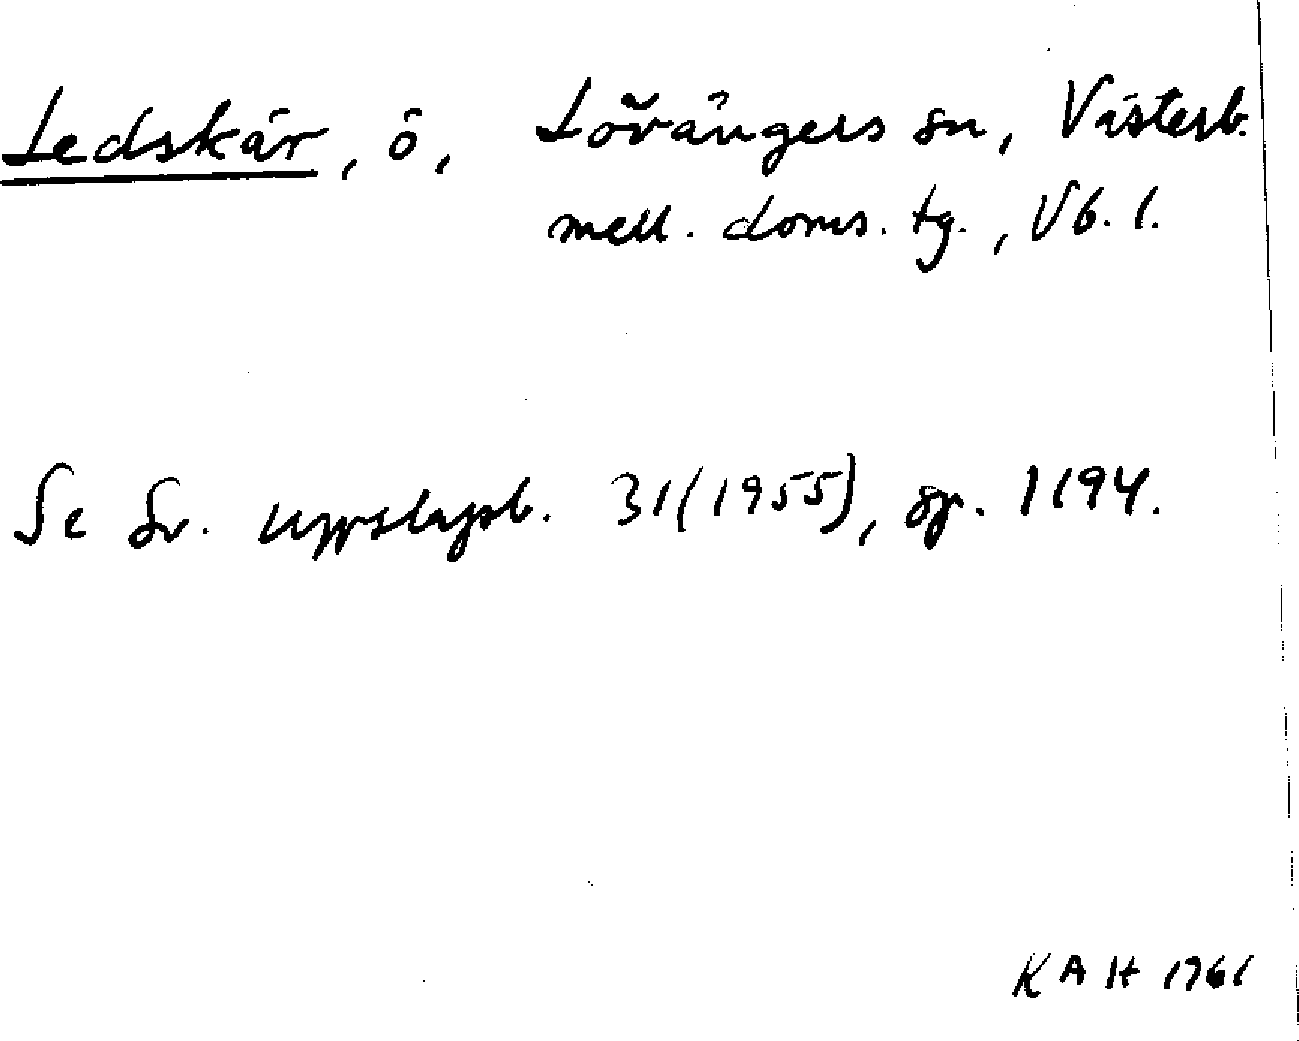 Ledskär, ö, Lövångers sn, Västerb.
mell. doms. tg., Vb. l.
Se Sv. uppslagsb. 31(1955), sp. 1194.
KAH 1961